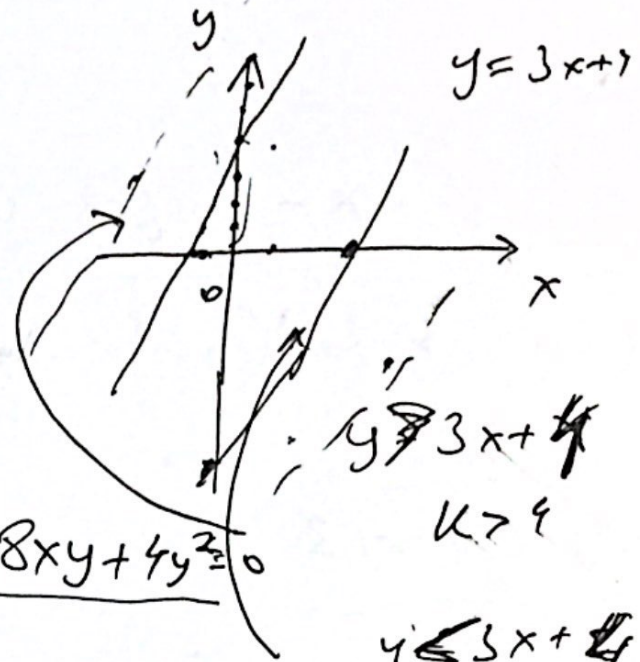 y
y = 3x+4
0
x
y 3x+
k > 4
8xy + 4y² = 0
y < 3x +